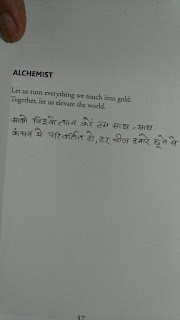 ALCHEMIST
Let us turn everything we touch into gold.
Together, let us elevate the world.
आओ विश्वोत्थान करें हम साथ-साथ
कंचन में परिवर्तित हो, हर चीज हमारे छूने से
37